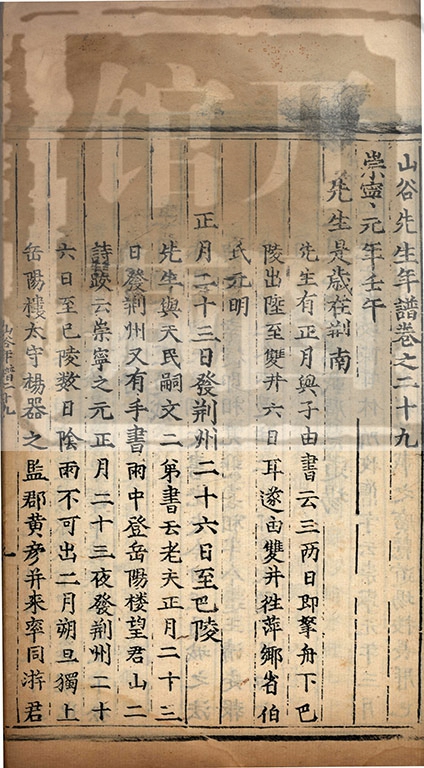 山谷先生年譜卷之二十九
崇寧元年壬午
先生是歲在荆南
先生有正月與子由書云三两日即挐舟下巴
陵出陸至雙井六日耳遂由雙井徃萍鄉省伯
氏元明
正月二十三日發荆州二十六日至巴陵
先生與天民嗣文二第書云老夫正月二十三
日發荆州又有手書雨中登岳陽楼望君山二
詩跋云崇寧之元正月二十三夜發荆州二十
六日至巴陵数日陰雨不可出二月朔旦獨上
岳陽樓太守楊器之監郡黄彦并来率同游君
山谷年譜二十九
一